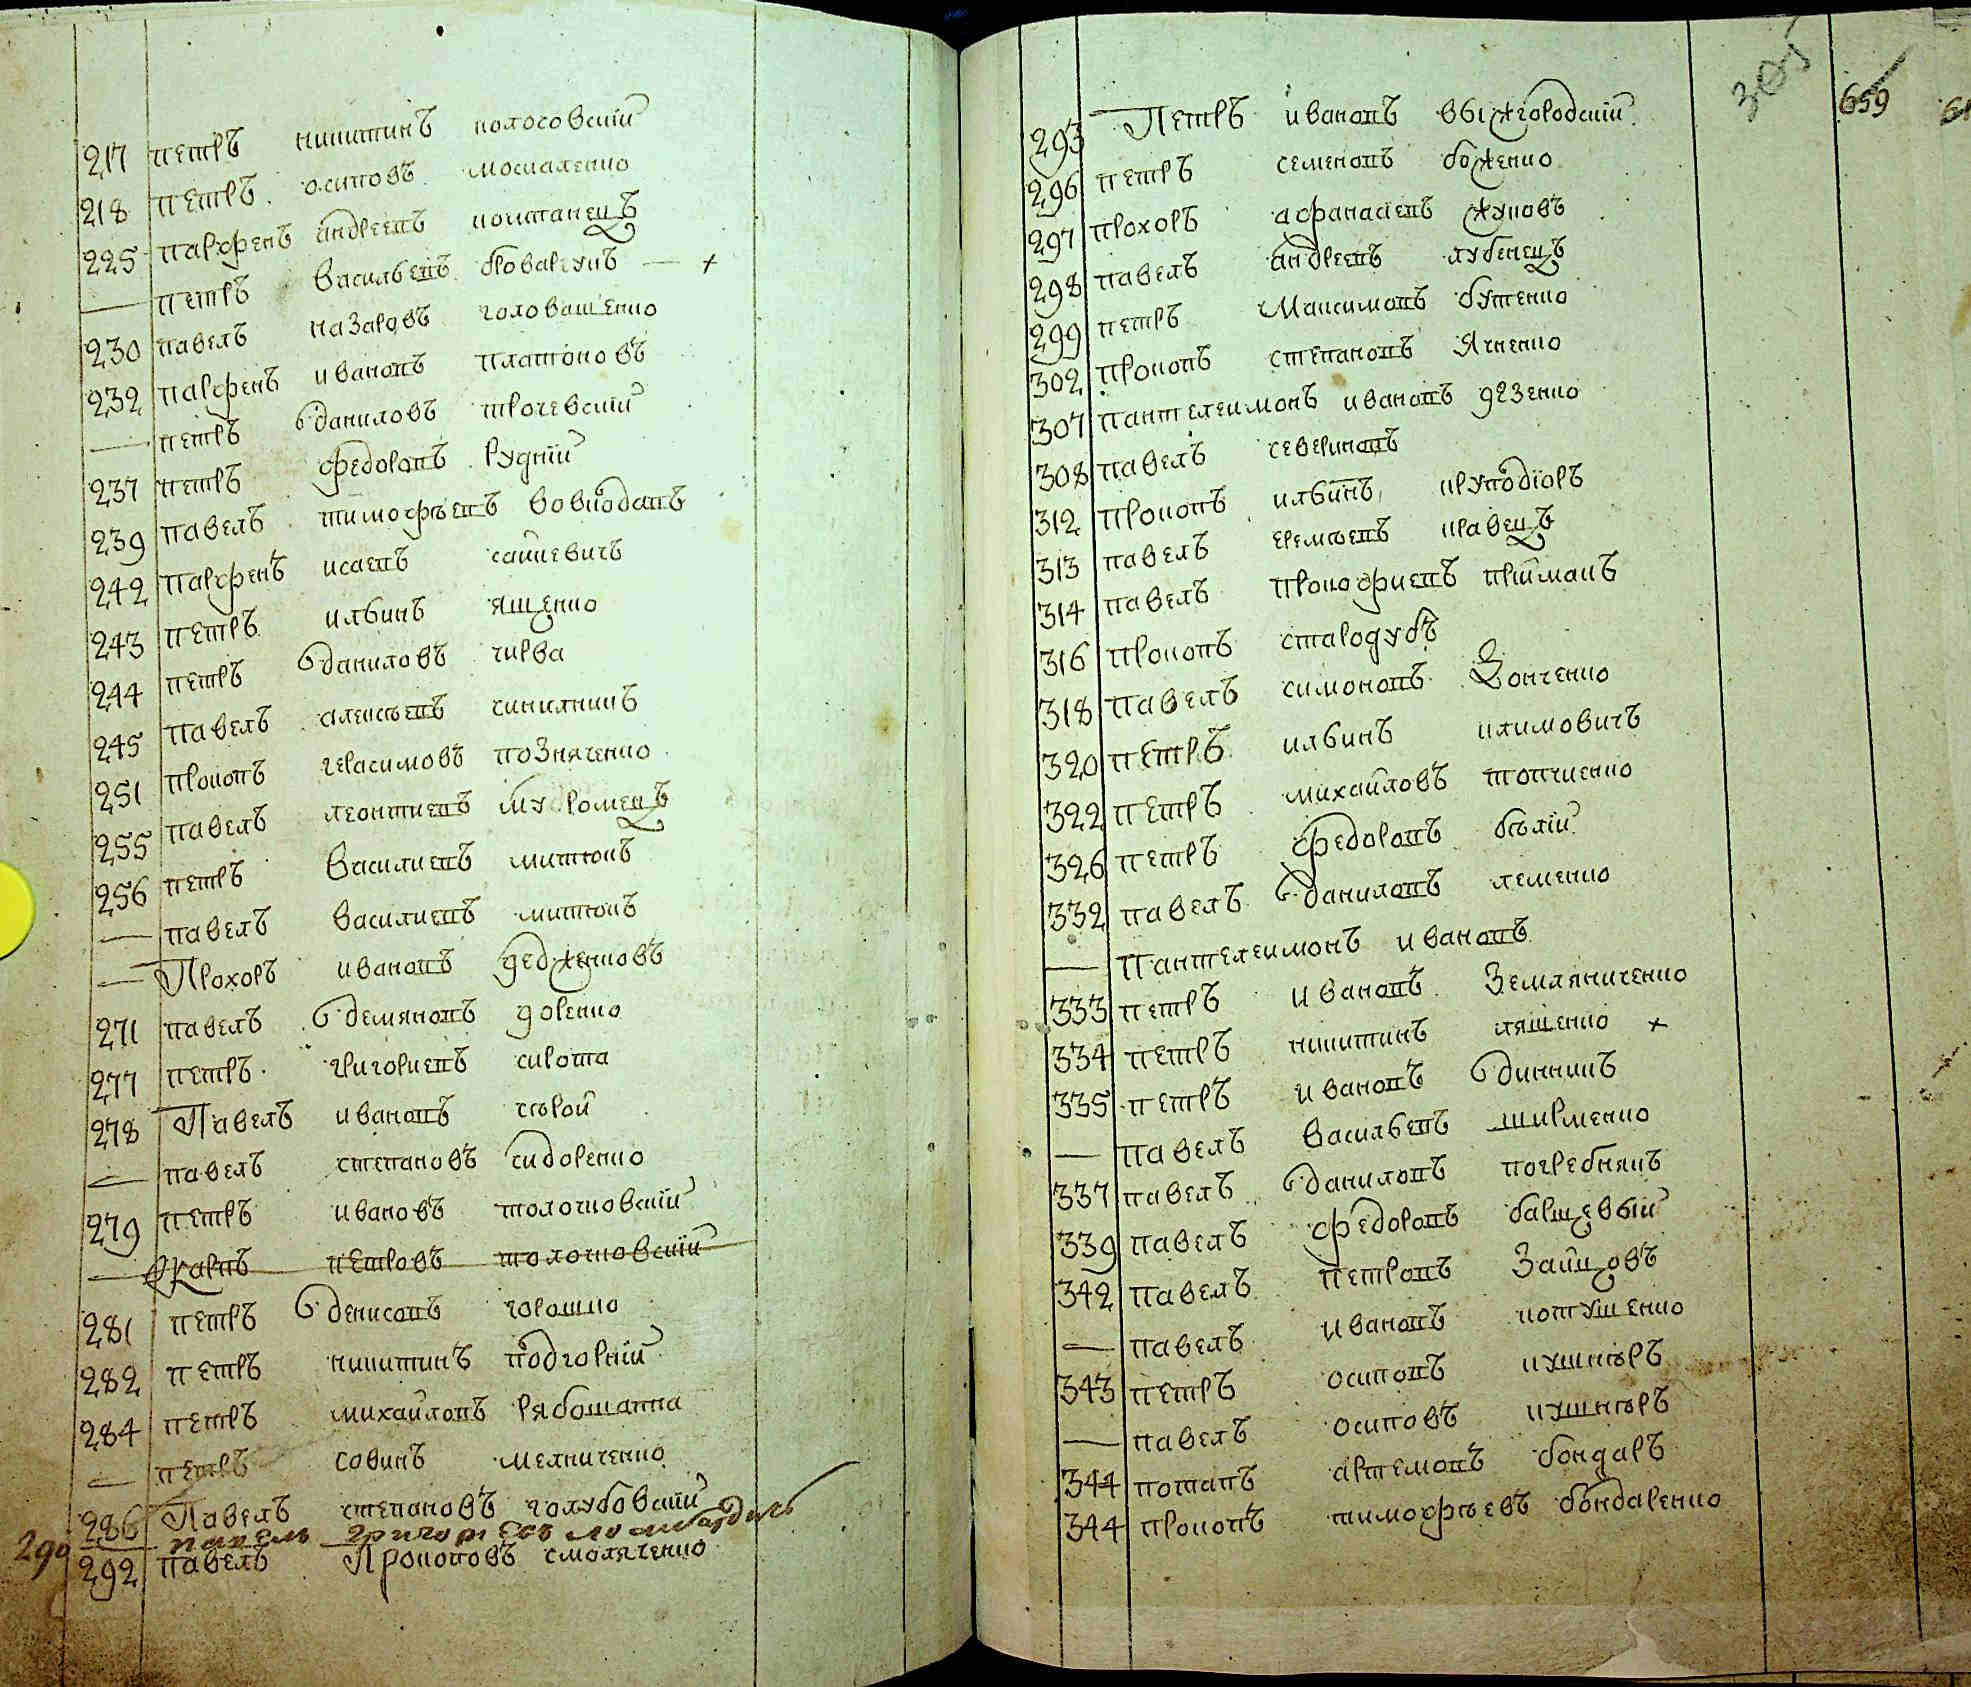 217 петръ никитинъ колосовскїй
218 петръ осиповъ москаленко
225 парфенъ андреевъ коштанецъ
— петръ васильевъ броварчукъ — +
230 павелъ назаровъ головащенко
232 парфенъ ивановъ платоновъ
— петръ даниловъ трочевскїй
237 петръ федоровъ рудкїй
239 павелъ тимофѣевъ вовкодавъ
242 парфенъ исаевъ сайкевичъ
243 петръ ильинъ ященко
244 петръ даниловъ чирва
245 павелъ алексѣевъ синилникъ
251 прокопъ герасимовъ позняченко
255 павелъ леонтиевъ муромецъ
256 петръ василиевъ митюкъ
— павелъ василиевъ митюкъ
— Прохоръ ивановъ дедженковъ
271 павелъ демяновъ доленко
277 петръ григориевъ сирота
278 Павелъ ивановъ сѣрой
— павелъ степановъ сидоренко
279 петръ ивановъ толочковскїй
— Карпъ петровъ толочковскїй
281 петръ денисовъ горошко
282 петръ никитинъ подгорнїй
284 петръ михайловъ рябошапка
— петръ савинъ мелниченко
286 Павелъ степановъ голубовскїй
290 павелъ григориевъ
292 павелъ Прокоповъ смоляченко
305
659
293 Петръ ивановъ вышгородскїй
296 петръ семеновъ боженко
297 прохоръ афанасиевъ жуковъ
298 павелъ андреевъ лубенецъ
299 петръ Максимовъ бутенко
302 прокопъ степановъ Яченко
307 пантелеимонъ ивановъ дезенко
308 павелъ севериновъ
312 прокопъ ильинъ круподїоръ
313 павелъ еремѣевъ кравецъ
314 павелъ прокофиевъ прїймакъ
316 прокопъ стародубъ
318 павелъ симоновъ Зонченко
320 петръ ильинъ климовичъ
322 петръ михайловъ топчиенко
326 петръ федоровъ бѣлїй
332 павелъ даниловъ леменко
— Пантелеимонъ ивановъ
333 петръ ивановъ Земляниченко
334 петръ никитинъ ляшенко +
335 петръ ивановъ динникъ
— павелъ васильевъ ширменко
337 павелъ даниловъ погребнякъ
339 павелъ федоровъ барщевый
342 павелъ петровъ Зайцовъ
— павелъ ивановъ котушенко
343 петръ осиповъ кушнѣръ
— павелъ осиповъ кушнѣръ
344 потапъ артемовъ бондаръ
344 прокопъ тимофѣевъ бондаренко